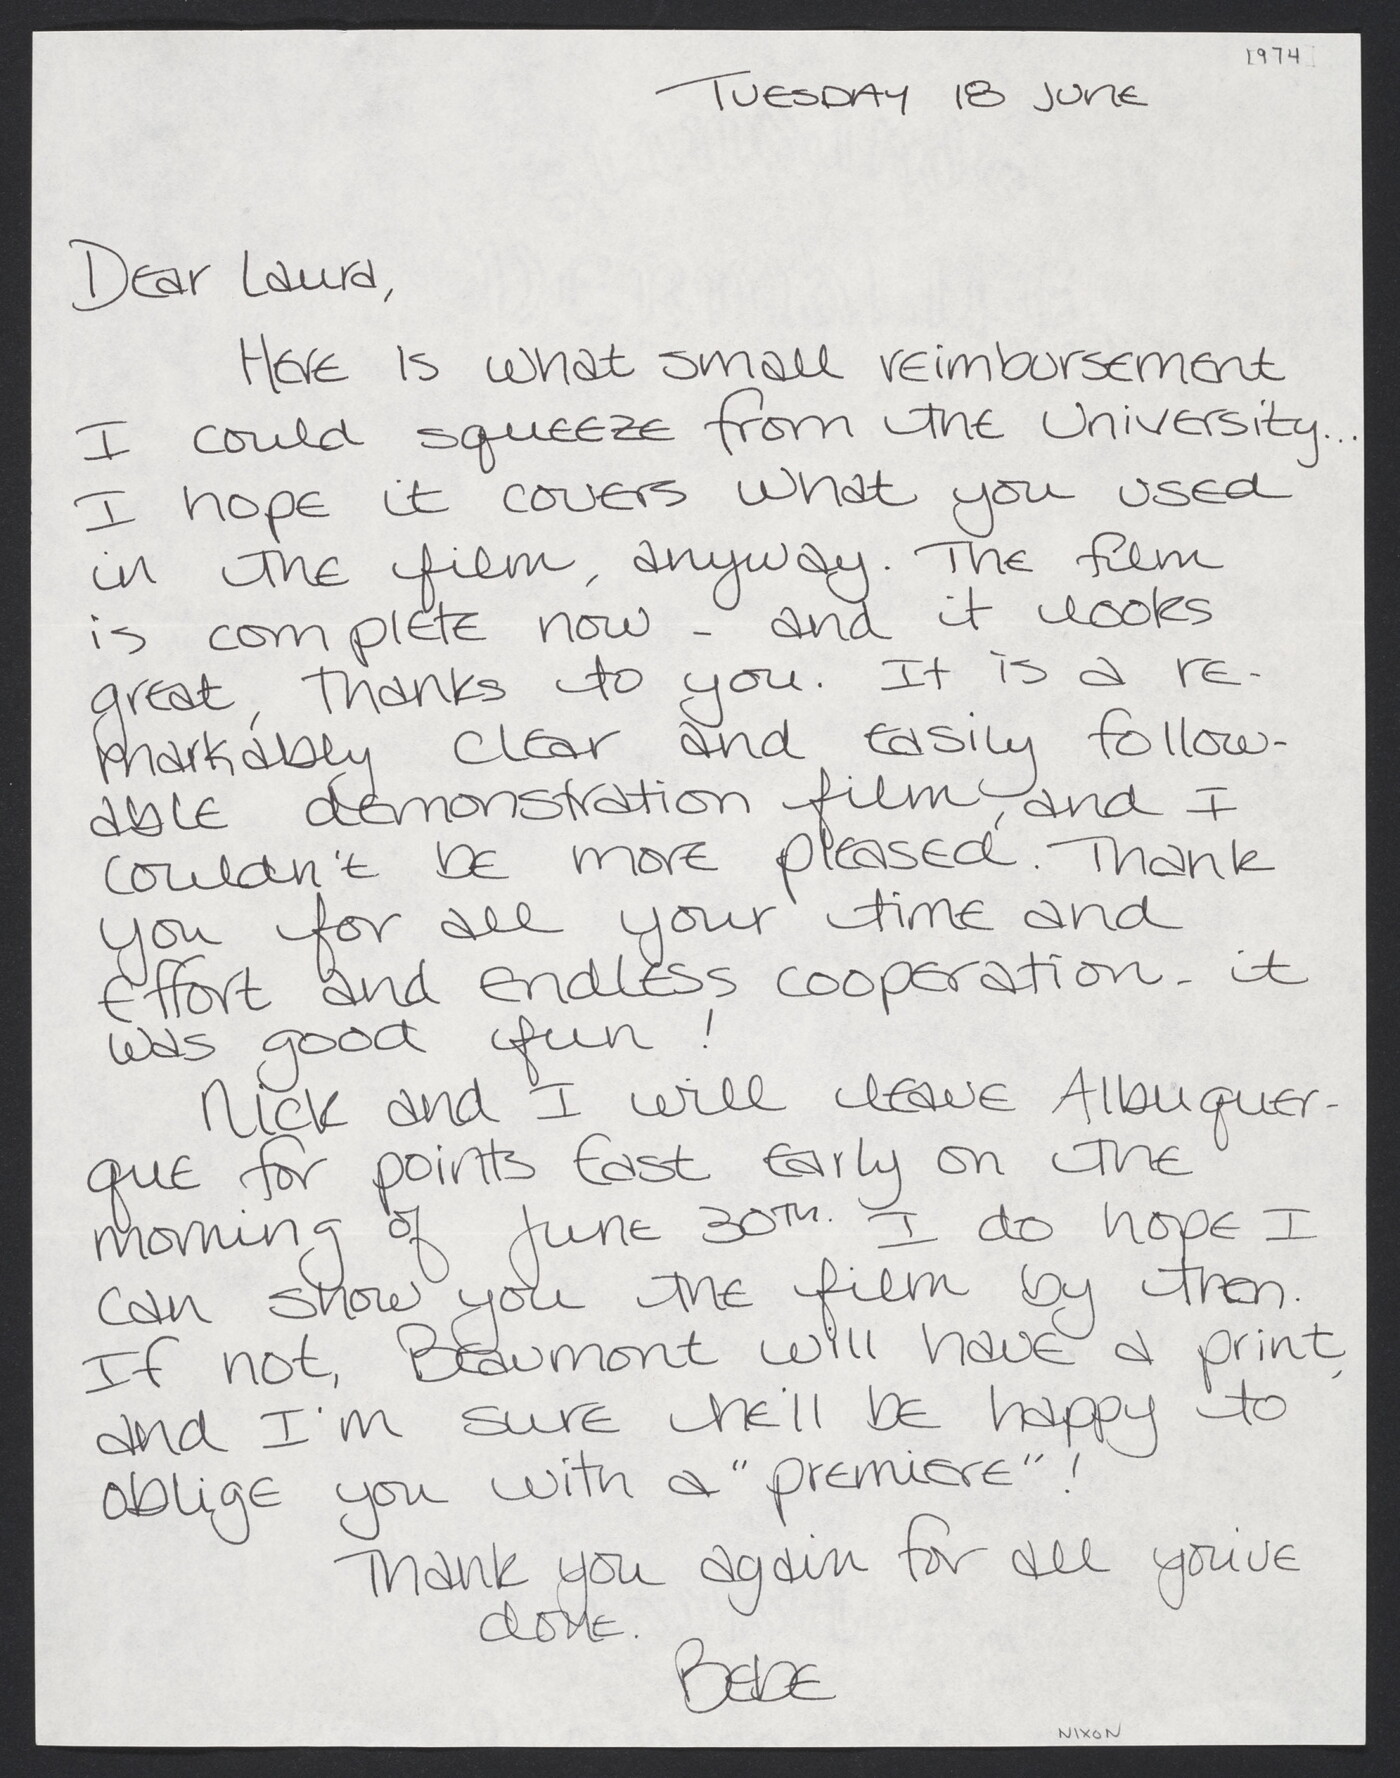 [1974]
TUESDAY 18 JUNE
Dear Laura,
Here is what small reimbursement
I could squeeze from the University...
I hope it covers what you used
in the film, anyway. The film
is complete now - and it looks
great, thanks to you. It is a re-
markably clear and easily follow-
able demonstration film, and I
couldn't be more pleased. Thank
you for all your time and
effort and endless cooperation - it
was good fun!
Nick and I will leave Albuquer-
que for points East early on the
morning of June 30th. I do hope I
can show you the film by then.
If not, Beaumont will have a print,
and I'm sure he'll be happy to
oblige you with a "premiere"!
Thank you again for all you've
done.
Bebe
NIXON